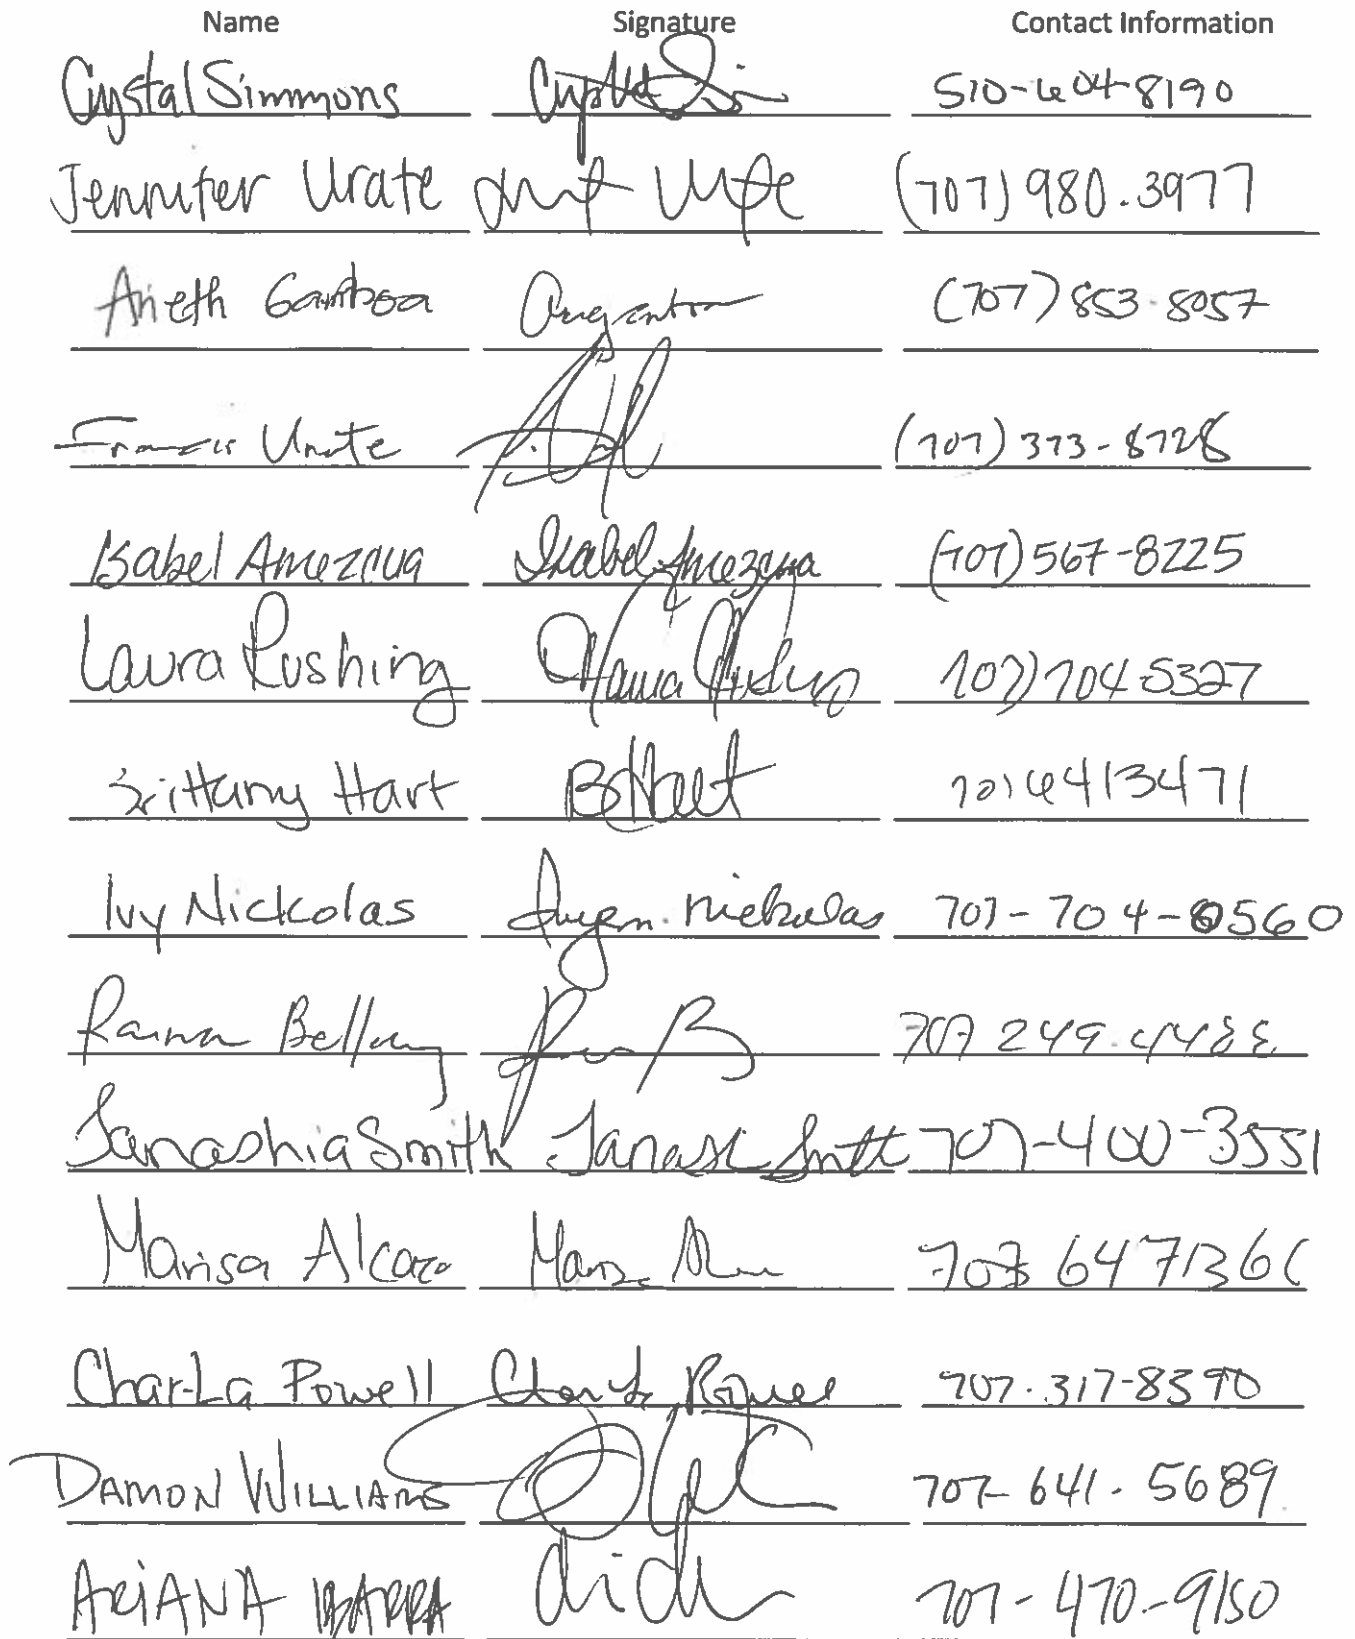 Name Signature Contact Information
Crystal Simmons 510-604-8190
Jennifer Urate (707) 980.3977
Arieth Gamboa (707) 853-8057
Francis Urate (707) 373-8728
Isabel Amezcua Isabel Amezcua (707) 567-8225
Laura Rushing Laura Rushing 707) 704-5327
Brittany Hart B Hart 7076413471
Ivy Nickolas Ivy m. Nickolas 707-704-0560
Bellamy 707 249.4488
Janashia Smith Smith 707-400-3551
Marisa Alcaraz 707 647136
Char-La Powell 707.317-8390
DAMON WILLIAMS 707-641-5689
ARIANA IBARRA 707-470-9150